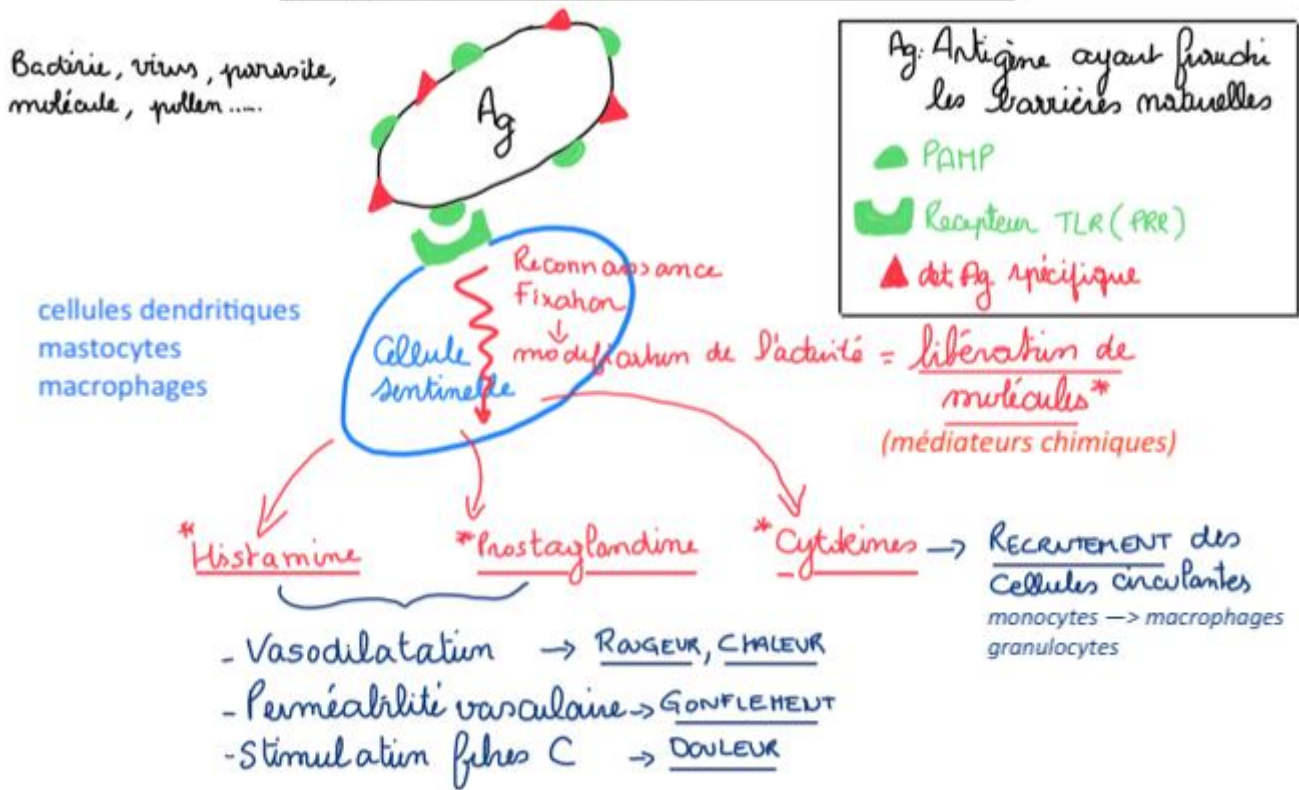 Bactérie, virus, parasite,
molécule, pollen.....
Ag
Ag: Antigène ayant franchi
les barrières naturelles
PAMP
Recepteur TLR (PRR)
det Ag spécifique
cellules dendritiques
mastocytes
macrophages
Cellule
sentinelle
Reconnaissance
Fixation
↓
modification de l'activité = libération de
molécules*
(médiateurs chimiques)
*Histamine
*Prostaglandine
*Cytokines → RECRUTEMENT des
Cellules circulantes
monocytes —> macrophages
granulocytes
- Vasodilatation → ROUGEUR, CHALEUR
- Perméabilité vasculaire → GONFLEMENT
- Stimulation fibres C → DOULEUR